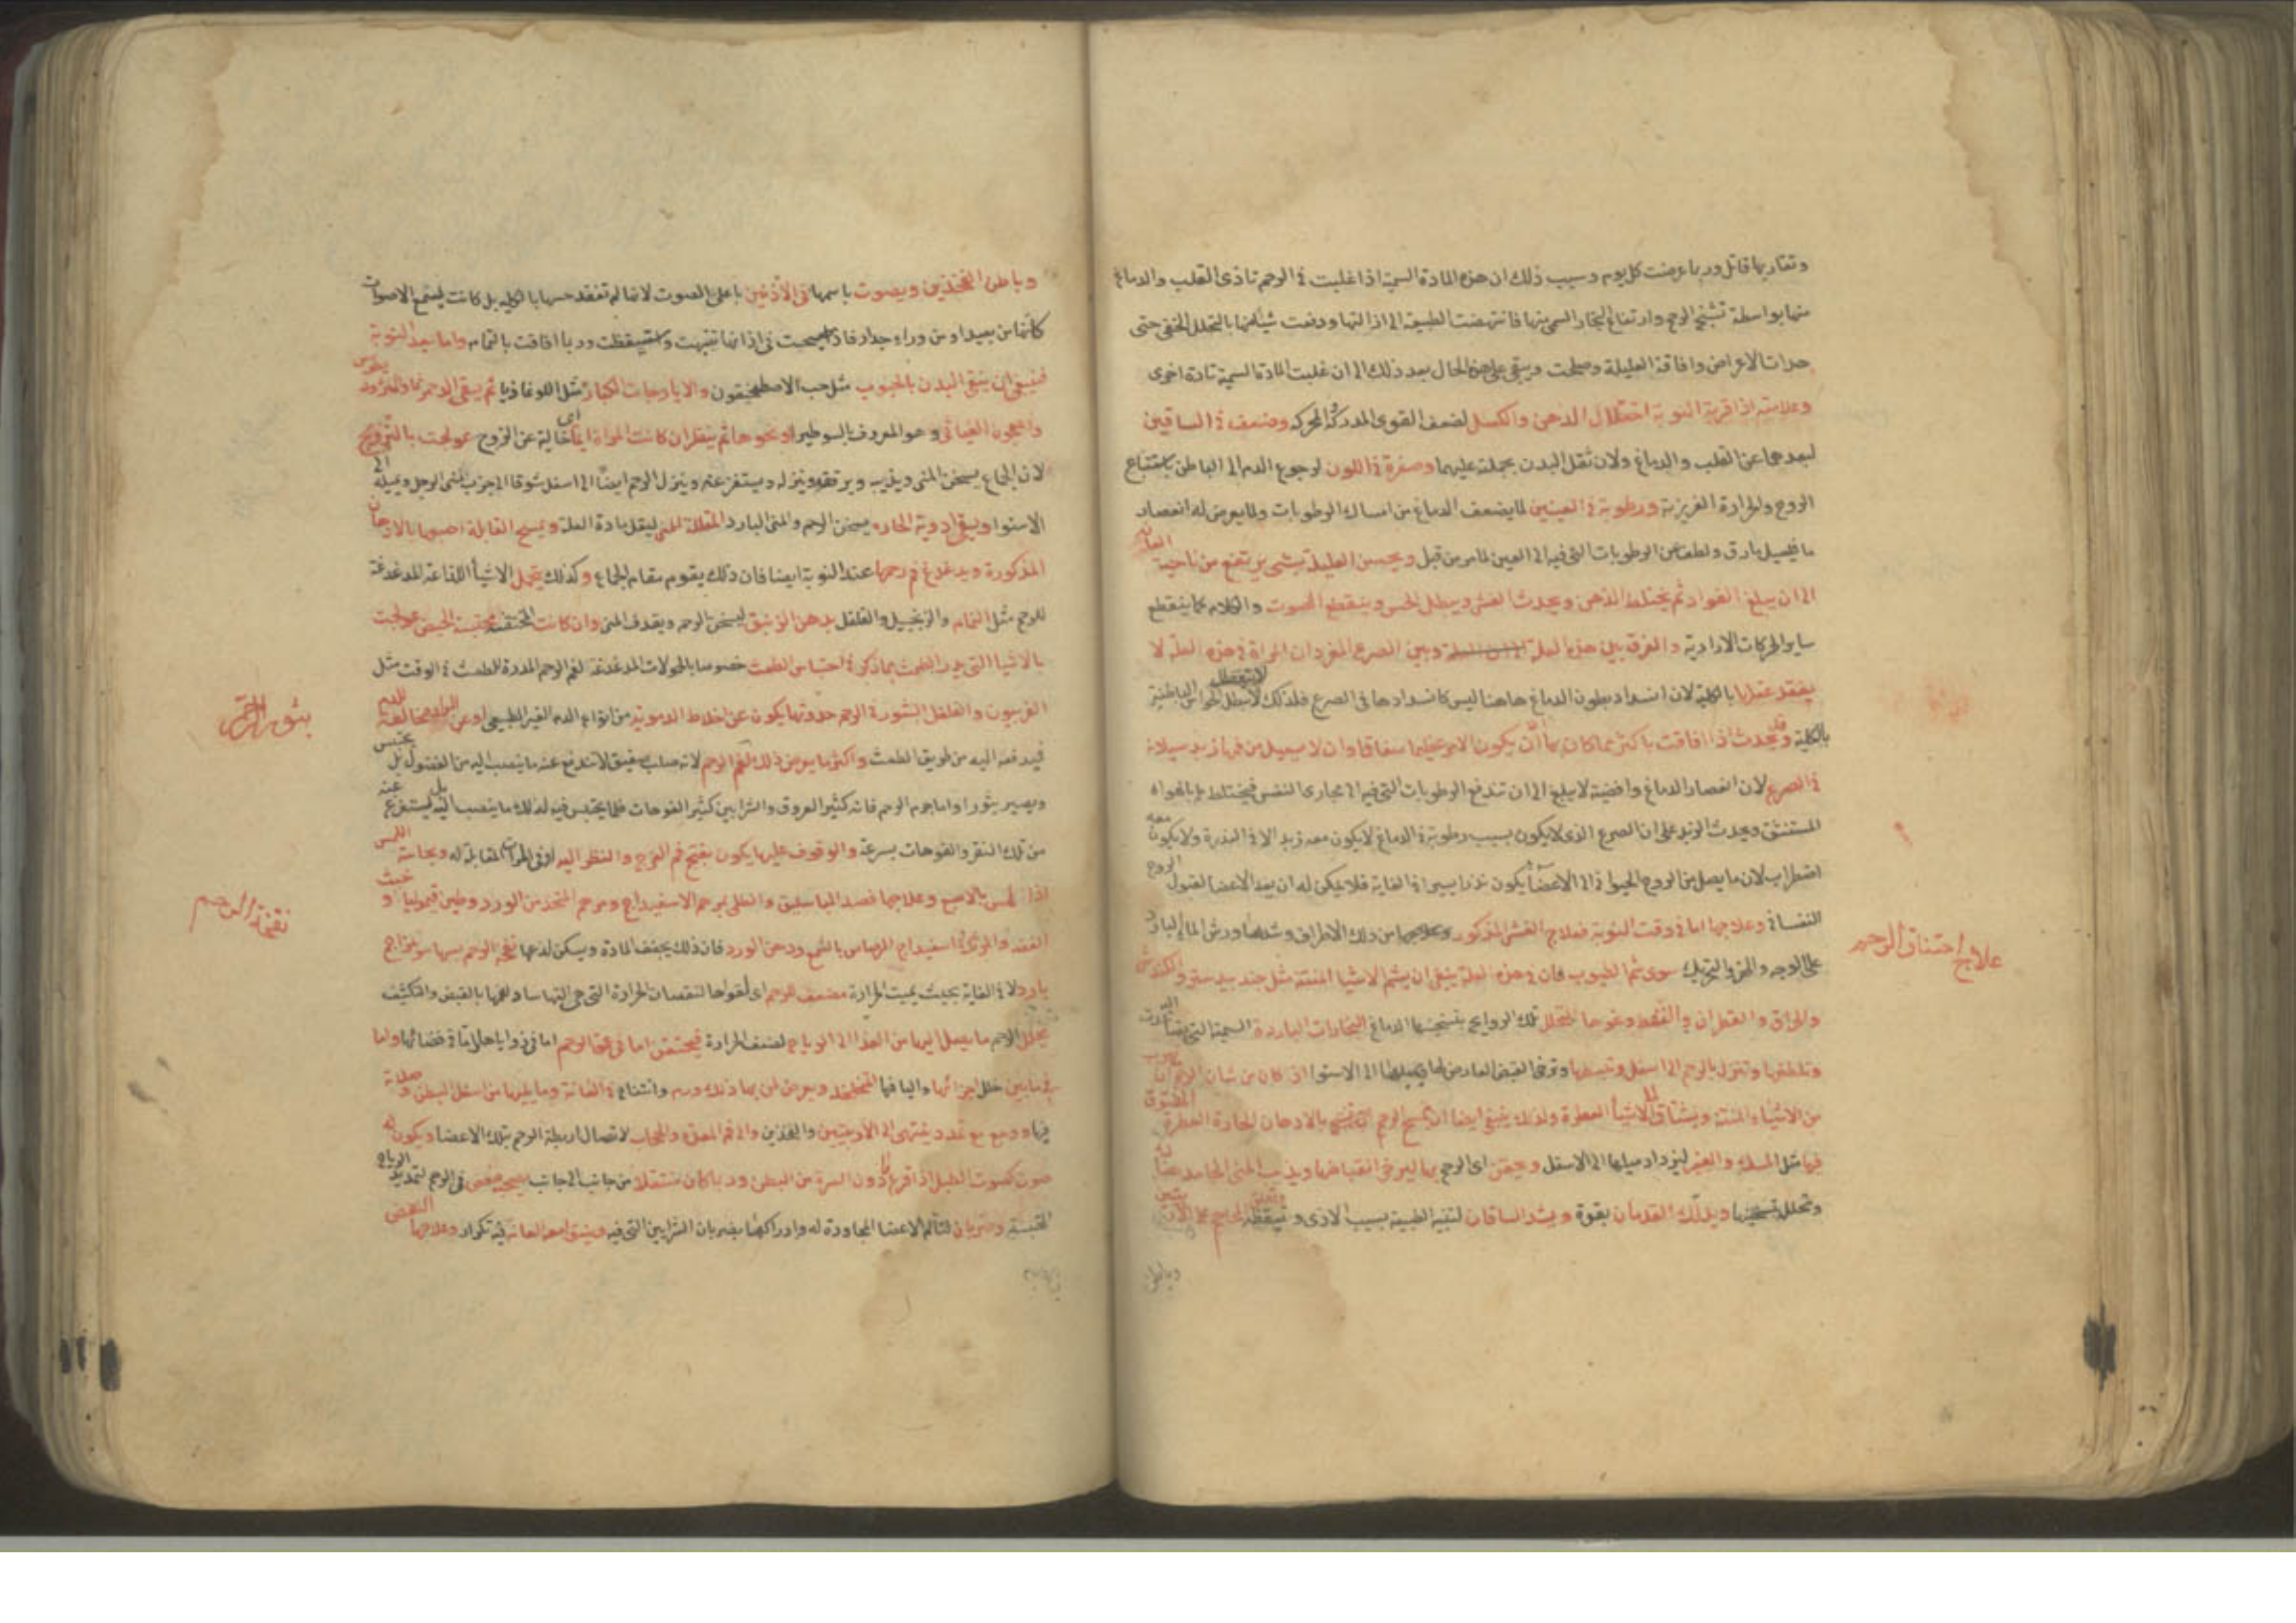 وتقاربها قاتل وربما عرضت كل يوم وسبب ذلك ان هذه المادة السمية اذا غلبت في الرحم تاذى القلب والدماغ
منها بواسطة تشنج الرحم وارتفاع البخار السمي منها فانتهضت الطبيعة الى ازالتها ودفعت شيئا منها بالتحلل الخفي حتى
هدات الاعراض وافاقت العليلة وصلحت وبقي على هذا الحال بعد ذلك الى ان غلبت المادة السمية تارة اخرى
وعلامته اذا قربت النوبة اختلال الذهن والكسل لضعف القوى المدركة والمحركة وضعف في الساقين
لبعدهما عن القلب والدماغ ولان ثقل البدن بجملته عليهما وصفرة في اللون لرجوع الدم الى الباطن باستتباع
الروح والحرارة الغريزية ورطوبة في العينين لما يضعف الدماغ عن امساك الرطوبات ولما يعرض له انعصار
ما فيسيل ما رق ولطف من الرطوبات التي فيه الى العين لما مر من قبل ويحس العليل بشي يرتفع من ناحية العانة
الى ان يبلغ الفواد ثم يختلط الذهن ويحدث الغشي ويبطل الحس وينقطع الصوت والكلام كما ينقطع
ساير الحركات الارادية والفرق بين هذه العلة وبين الصرع المفرد ان المراة في هذه العلة لا
يفقد عقلها بالكلية لان انسداد بطون الدماغ هاهنا ليس كانسدادها في الصرع فلذلك لا يتعطل الحواس الباطنية
بالكلية وقد يحدث اذا افاقت باكثر مما كان بها الا ان يكون الامر عظيما متفاقما وان لا يسيل من فمها زبد سيلانه
في الصرع لان انعصار الدماغ وانقباضه لا يبلغ الى ان تندفع الرطوبات التي فيه الى مجاري النفس فيختلط بالهواء
المستنشق ويحدث الزبد على ان الصرع الذي لا يكون بسبب رطوبة في الدماغ لا يكون معه زبد الا في الندرة ولا يكون معه
اضطراب لان ما يصل من الروح الحيواني الى الاعضا يكون نزرا يسيرا في الغاية فلا يمكن له ان يعد الاعضا لقبول الروح
النفساني وعلاجها اما في وقت النوبة فعلاج الغشي المذكور من دلك الاطراف وشدها ورش الما البارد
على الوجه والهز والتحريك سوى شم الطيوب فان في هذه العلة ينبغي ان يشم الاشيا المنتنة مثل جندبيدستر والكندش
والحراق والقطران والنفط ونحوها لتحلل تلك الروايح بتسخينها الدماغ البخارات الباردة السمية التي
وتلطفها وتنزل بالرحم الى اسفل وتبسطها وترخي القبض العارض لها ويميلها الى الاستوا اذ كان من شان الرحم ان تهرب
من الاشياء المنتنة ويشتاق الى الاشيا العطرة ولذلك ينبغي ايضا ان يمسح فم الرحم بالادهان الحارة العطرة المقوية
فيها مثل المسك والعنبر ليزداد ميلها الى الاسفل ويحقن اي الرحم بها ليرخى انقباضها ويذيب المنى الجامد
وتحلل ويدلك القدمان بقوة ويشد الساقان لتنبه الطبيعة بسبب الاذى
وباطن
علاج اختناق الرحم
وباطن الفخذين ويصوت باسمها في الاذنين باعلى الصوت لانها لم تفقد حسها بالكلية بل كانت يسمع الاصوات
كانها من بعيد او من وراء جدار فاذا صيحت في اذانها تنبهت واستيقظت وربما افاقت بالتمام واما بعد النوبة
فينبغي ان ينقى البدن بالحبوب مثل حب الاصطمخيقون والايارجات الكبار مثل اللوغاذيا ثم يسقى
والمعجون الغياثي وهو المعروف بالسوطيرا ونحوها ثم ينظر ان كانت المراة خالية عن الزوج عولجت بالتزويج
لان الجماع يسخن المنى ويذيبه ويرققه وينزله ويستفرغه وينزل الرحم ايضا الى اسفل شوقا الى جذب المنى الرجل ويميله الى
الاستوا ويسقى ادوية الحاره يسخن الرحم والمنى البارد المقللة للمنى ليقل مادة العلة ويمسح القابلة اصبعها بالادهان
المذكورة ويدغدغ فم رحمها عند النوبة ايضا فان ذلك يقوم مقام الجماع وكذلك يتحمل الاشيا اللذاعة المدغدغة
للرحم مثل الثمام والزنجبيل والفلفل بدهن الزنبق ليسخن الرحم ويقذف المنى وان كانت المختنقة محتبسة الحيض عولجت
بالاشيا التي يدر الطمث بما ذكر في احتباس الطمث خصوصا بالحمولات المدغدغة لفم الرحم المدرة للطمث في الوقت مثل
الفربيون والفلفل البثور في الرحم حدوثها يكون عن اخلاط الدموية من انواع الدم الغير الطبيعي او عن المواد مخالفة للدم
فيدفعه اليه من طريق الطمث واكثر ما يعرض ذلك لفم الرحم لانه صلب ضيق لا تندفع عنه ما ينصب اليه من الفضول بل يحتبس
ويصير بثورا واما جرم الرحم فانه كثير العروق والشرايين كثير الفوهات فلما يحتبس فيه لذلك ما ينصب اليه بل يستفرغ عنه
من تلك النقر والفوهات بسرعة والوقوف عليها يكون بفتح فم الفرج والنظر اليه او في المرآة المقابلة له وبحاسة اللمس
اذا لمس بالاصبع وعلاجها فصد الباسليق والطلي بمرهم الاسفيداج ومرهم المتخذ من الورد وطين قيموليا وخبث
الفضة والمرتك واسفيداج الرصاص بالشمع ودهن الورد فان ذلك يجفف المادة ويسكن لذعها نفخة الرحم سببها سو مزاج
بارد لا في الغاية بحيث يميت الحرارة مضعف للرحم اي لقواها لنقصان الحرارة التي هي التها ساد لفمها بالقبض والتكثيف
يحلل الرحم ما يصل اليها من الغذا الى الرياح لضعف الحرارة فيحتقن اما في عمق الرحم اما في زواياها واما في فضائها واما
فيما بين خلل اجزائها واليافها المتخلخلة ويعرض لمن بها ذلك ورم وانتفاخ في العانة وما يليها من اسفل البطن وصلابة
فيها ووجع مع تمدد ينتهي الى الاربيتين والفخذين والى فم المعدة والحجاب لاتصال اربطة الرحم بتلك الاعضا ويكون له
صوت كصوت الطبل اذا قرع ما دون السرة من البطن وربما كان منتقلا من جانب الى جانب مغص في الرحم لتمديد الرياح
المحتبسة وضربان لتالم الاعضا المجاورة له وادراكها بضربان الشرايين التي فيه وينتو معه العانة فيه تكرار وعلاجها
بثور الرحم
نفخة الرحم